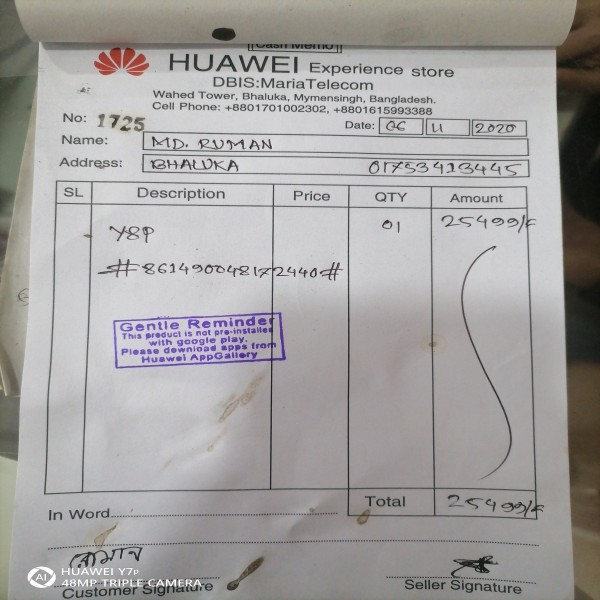 Cash Memo
HUAWEI Experience store
DBIS:MariaTelecom
Wahed Tower, Bhaluka, Mymensingh, Bangladesh.
Cell Phone: +8801701002302, +8801615993388
No: 1725 Date: 06 11 2020
Name: MD. RUMAN
Address: BHALUKA 01753413445
SL Description Price QTY Amount
Y8P 01 25499/-
#861490048172440#
Gentle Reminder
This product is not pre-installed
with google play.
Please download apps from
Huawei AppGallery
Total 25499/-
In Word
রোমান
Customer Signature Seller Signature
AI HUAWEI Y7p
48MP TRIPLE CAMERA